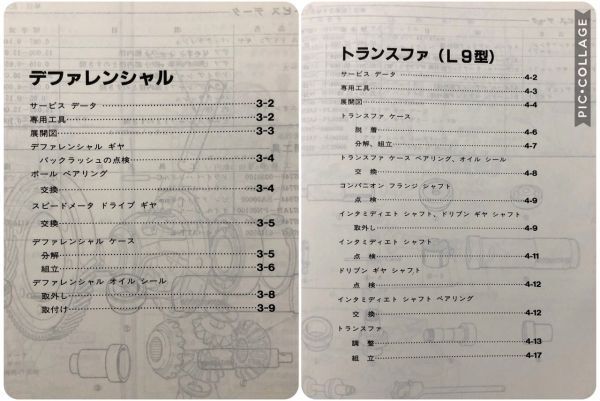 デファレンシャル
サービス データ 3-2
専用工具 3-2
展開図 3-3
デファレンシャル ギヤ
バックラッシュの点検 3-4
ボール ベアリング
交換 3-4
スピードメータ ドライブ ギヤ
交換 3-5
デファレンシャル ケース
分解 3-5
組立 3-6
デファレンシャル オイル シール
取外し 3-8
取付け 3-9
トランスファ(L9型)
サービス データ 4-2
専用工具 4-3
展開図 4-4
トランスファ ケース
脱着 4-6
分解、組立 4-7
トランスファ ケース ベアリング、オイル シール
交換 4-8
コンパニオン フランジ シャフト
点検 4-9
インタミディエト シャフト、ドリブン ギヤ シャフト
取外し 4-9
インタミディエト シャフト
点検 4-11
ドリブン ギヤ シャフト
点検 4-12
インタミディエト シャフト ベアリング
交換 4-12
トランスファ
調整 4-13
組立 4-17
PIC•COLLAGE